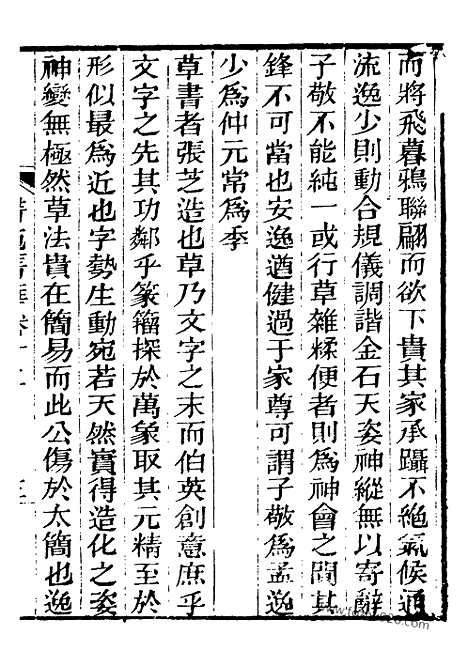 而將飛暮鴉聯翩而欲下貴其家承躡不絶氣候通
流逸少則動合規儀調諧金石天姿神縱無以寄辭
子敬不能純一或行草雜糅便者則爲神會之間其
鋒不可當也安逸遒健過于家尊可謂子敬爲孟逸
少爲仲元常爲季
草書者張芝造也草乃文字之末而伯英創意庶乎
文字之先其功鄰乎篆籀探於萬象取其元精至於
形似最爲近也字勢生動宛若天然實得造化之姿
神變無極然草法貴在簡易而此公傷於太簡也逸